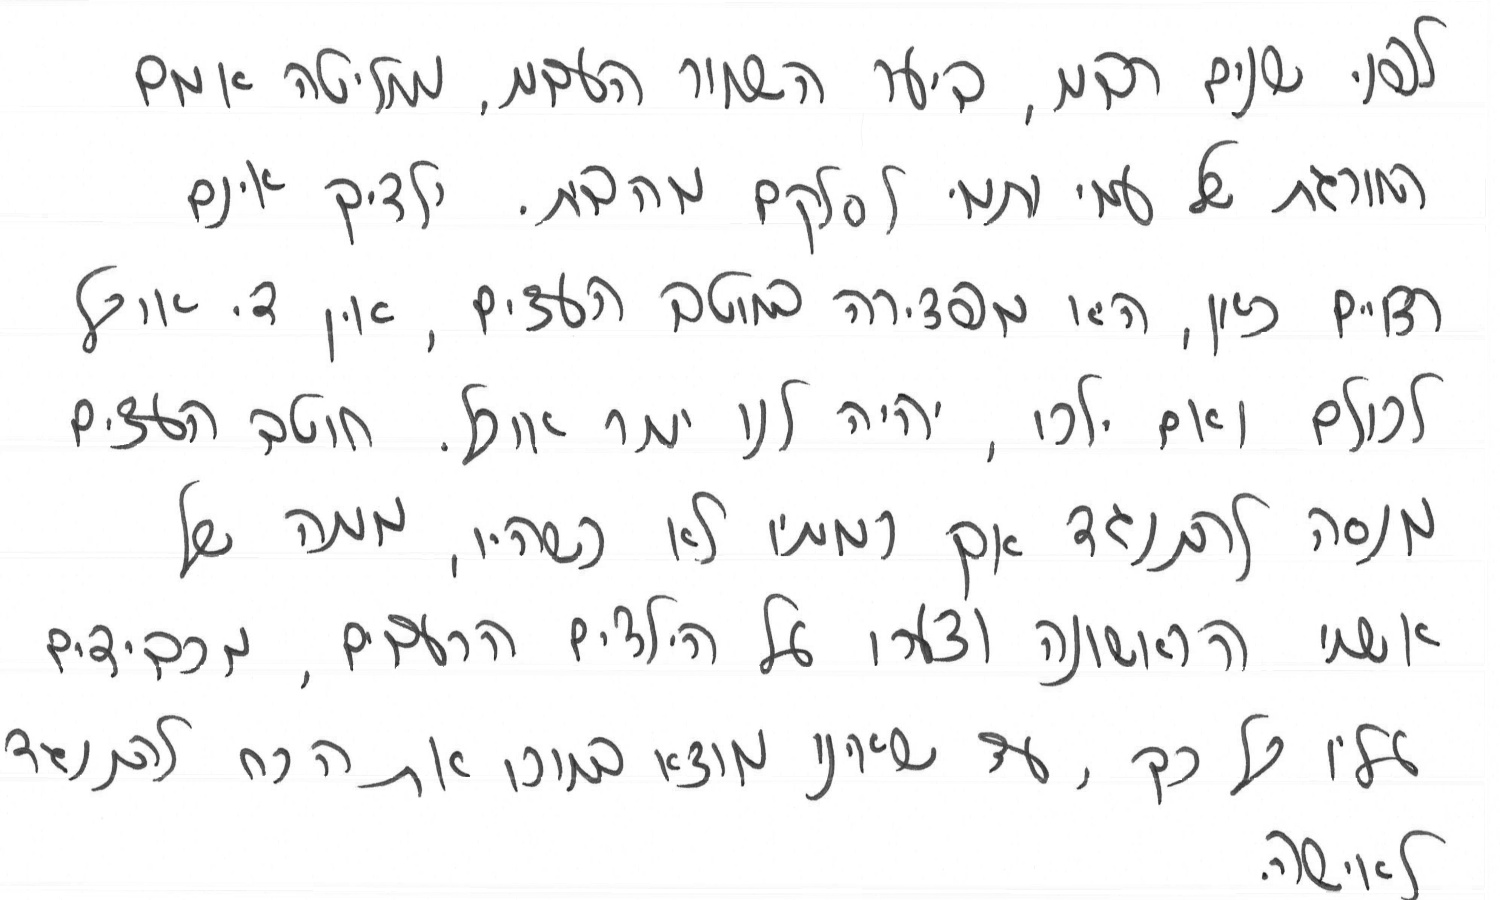 לפני שנים רבות, ביער השחור העבות, מחליטה אמם
החורגת של עמי ותמי לסלקם מהבית. ילדיך אינם
רצויים כאן, היא מפצירה בחוטב העצים, אין די אוכל
לכולם ואם ילכו, יהיה לנו יותר אוכל. חוטב העצים
מנסה להתנגד אך רמתיו לא כשהיו, מותה של
אשתו הראשונה וצערו על הילדים הרעבים, מכבידים
עליו כל כך, עד שאינו מוצא בתוכו את הכח להתנגד
לאישה.